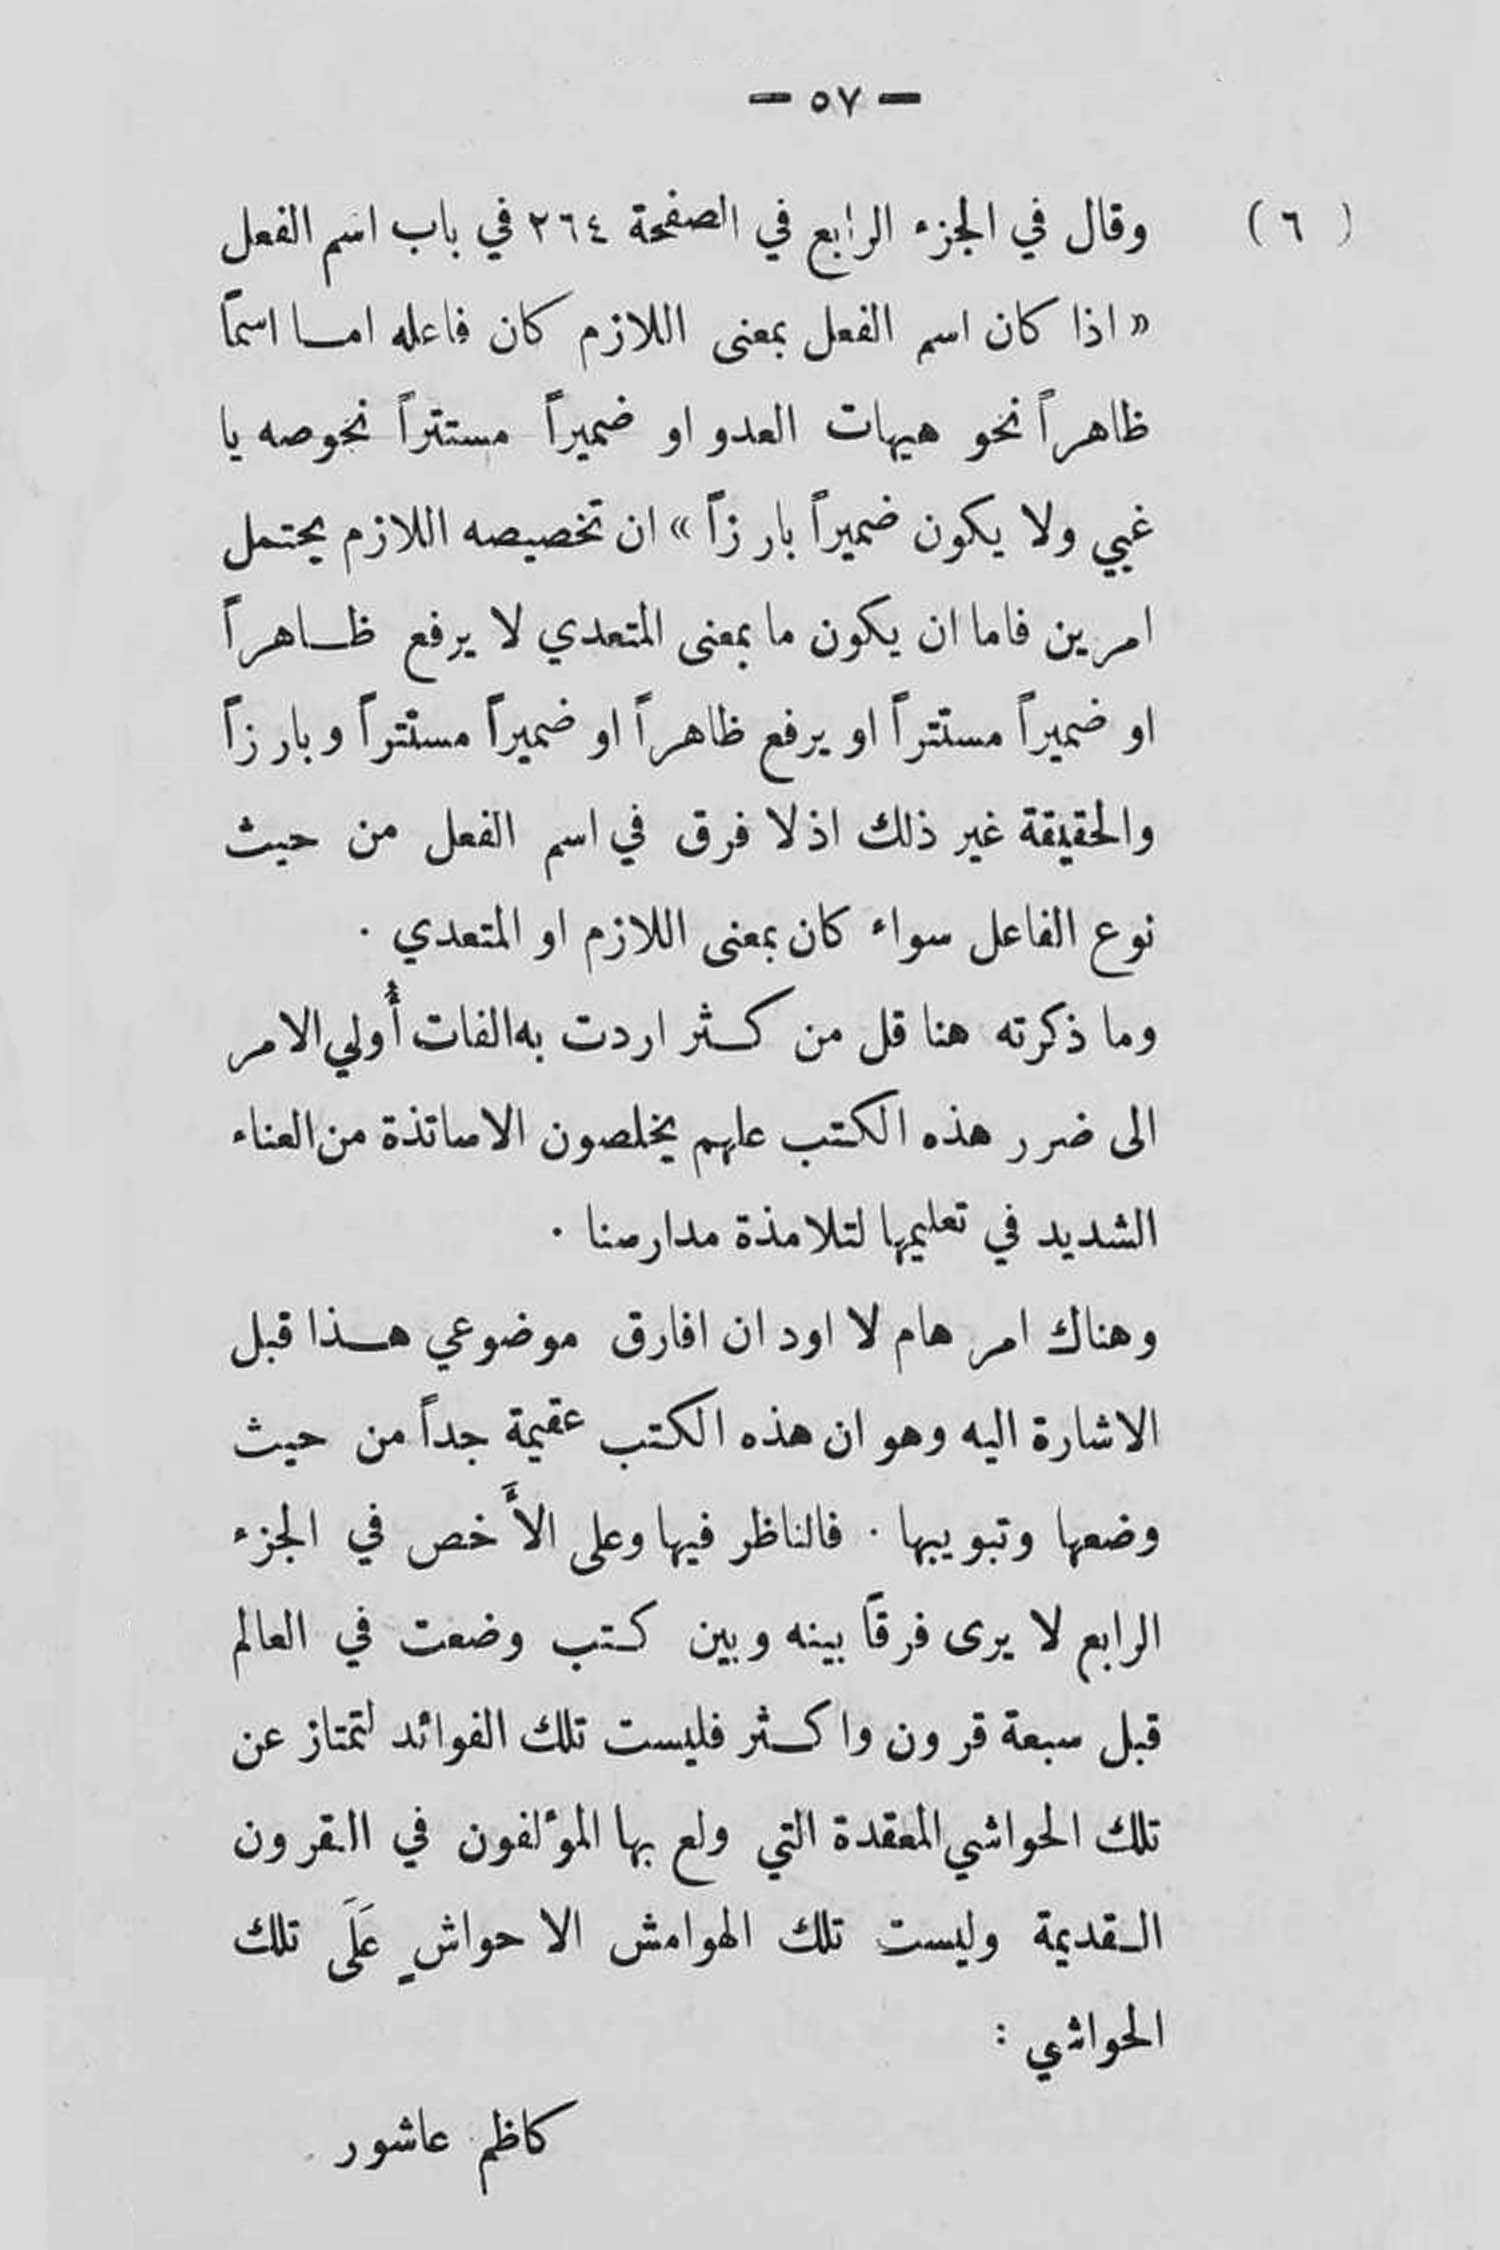 — ٥٧ —
( ٦ ) وقال في الجزء الرابع في الصفحة ٢٦٤ في باب اسم الفعل
« اذا كان اسم الفعل بمعنى اللازم كان فاعله اما اسمًا
ظاهراً نحو هيهات العدو او ضميراً مستتراً نحوصه يا
غبي ولا يكون ضميراً بارزاً » ان تخصيصه اللازم يحتمل
امرين فاما ان يكون ما بمعنى المتعدي لا يرفع ظاهراً
او ضميراً مستتراً او يرفع ظاهراً او ضميراً مستتراً وبارزاً
والحقيقة غير ذلك اذ لا فرق في اسم الفعل من حيث
نوع الفاعل سواء كان بمعنى اللازم او المتعدي .
وما ذكرته هنا قل من كثر اردت به الفات أُولي الامر
الى ضرر هذه الكتب علهم يخلصون الاساتذة من العناء
الشديد في تعليمها لتلامذة مدارسنا .
وهناك امر هام لا اود ان افارق موضوعي هذا قبل
الاشارة اليه وهو ان هذه الكتب عقيمة جداً من حيث
وضعها وتبويبها . فالناظر فيها وعلى الأَخص في الجزء
الرابع لا يرى فرقًا بينه وبين كتب وضعت في العالم
قبل سبعة قرون واكثر فليست تلك الفوائد لتمتاز عن
تلك الحواشي المعقدة التي ولع بها المؤلفون في القرون
القديمة وليست تلك الهوامش الا حواشٍ عَلَى تلك
الحواشي :
كاظم عاشور